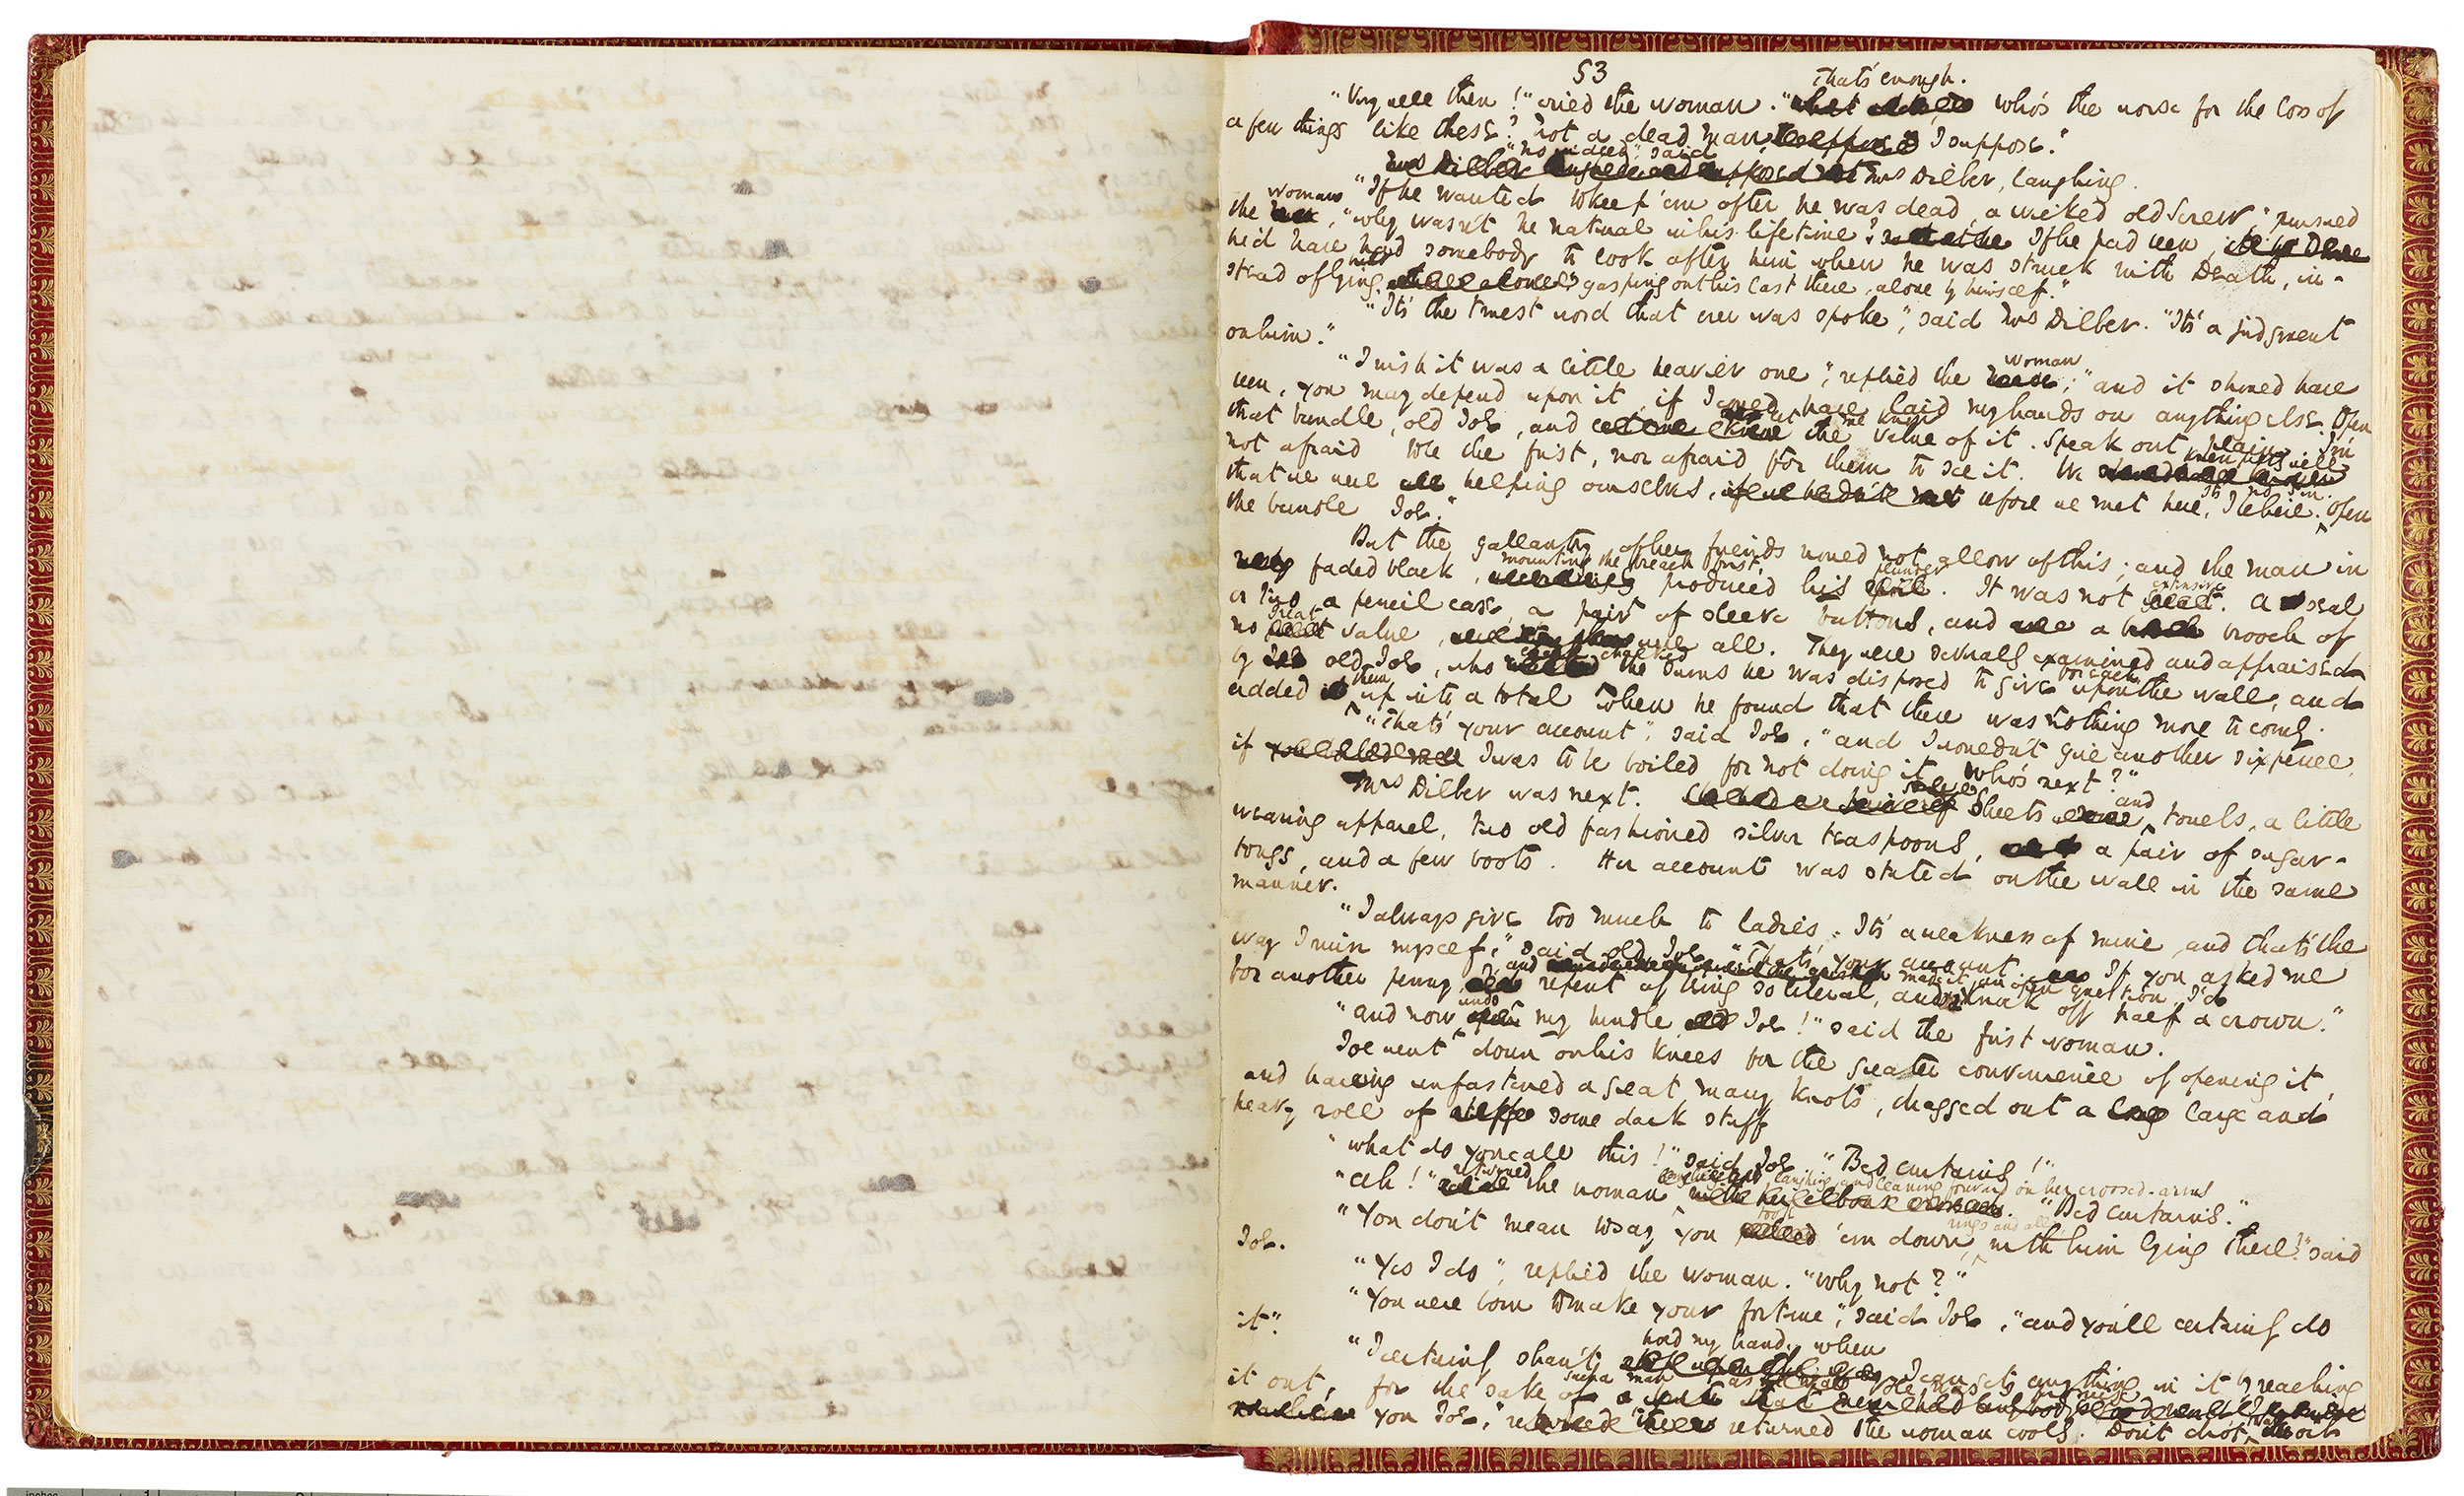 53
That's enough.
"Very well then!" cried the woman. " who's the worse for the loss of
a few things like these? Not a dead man I suppose."
"No indeed," said Mrs Dilber, laughing.
"If he wanted to keep 'em after he was dead, a wicked old Screw," pursued
the woman, "why wasn't he natural in his lifetime? If he had been,
he'd have had somebody to look after him when he was struck with Death, in-
stead of lying gasping out his last there, alone by himself."
"It's the truest word that ever was spoke," said Mrs Dilber. "It's a judgment
on him."
"I wish it was a little heavier one," replied the woman; "and it should have
been, you may depend upon it, if I could have laid my hands on anything else. Open
that bundle, old Joe, and let me know the value of it. Speak out plain. I'm
not afraid to be the first, nor afraid for them to see it. We knew pretty well
that we were helping ourselves, before we met here, I believe. It's no sin. Open
the bundle Joe."
But the gallantry of her friends would not allow of this; and the man in
faded black, mounting the breach first, produced his plunder. It was not extensive. A seal
or two, a pencil case, a pair of sleeve buttons, and a brooch of
no great value, were all. They were severally examined and appraised
by old Joe, who chalked the sums he was disposed to give for each upon the wall, and
added them up into a total when he found that there was nothing more to come.
"That's your account," said Joe, "and I wouldn't give another sixpence,
if I was to be boiled for not doing it. Who's next?"
Mrs Dilber was next. Sheets and towels, a little
wearing apparel, two old fashioned silver teaspoons, a pair of sugar-
tongs, and a few boots. Her account was stated on the wall in the same
manner.
"I always give too much to ladies. It's a weakness of mine, and that's the
way I ruin myself," said old Joe. "That's your account. If you asked me
for another penny, and made it an open question, I'd
repent of being so liberal, and knock off half a crown."
"and now undo my bundle Joe!" said the first woman.
Joe went down on his knees for the greater convenience of opening it,
and having unfastened a great many knots, dragged out a large and
heavy roll of some dark stuff
"what do you call this!" said Joe. "Bed curtains!"
"Ah!" returned the woman, laughing and leaning forward on her crossed-arms. "Bed curtains."
"You don't mean to say you took 'em down, rings and all, with him lying there!" said
Joe.
"Yes I do", replied the woman. "Why not?"
"You were born to make your fortune," said Joe, "and you'll certainly do
it".
"I certainly shan't hold my hand, when I can get anything in it by reaching
it out, for the sake of such a man as he was, I promise
you Joe," returned the woman coolly. Don't drop that oil